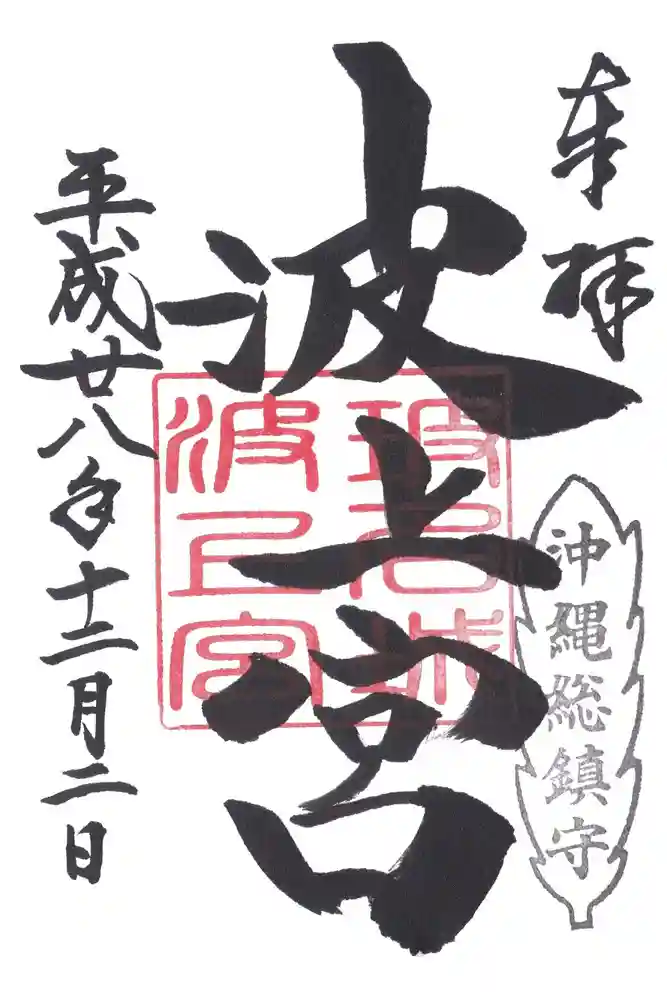 奉拝
沖縄総鎮守
波上宮
波上宮
平成廿八年十二月二日